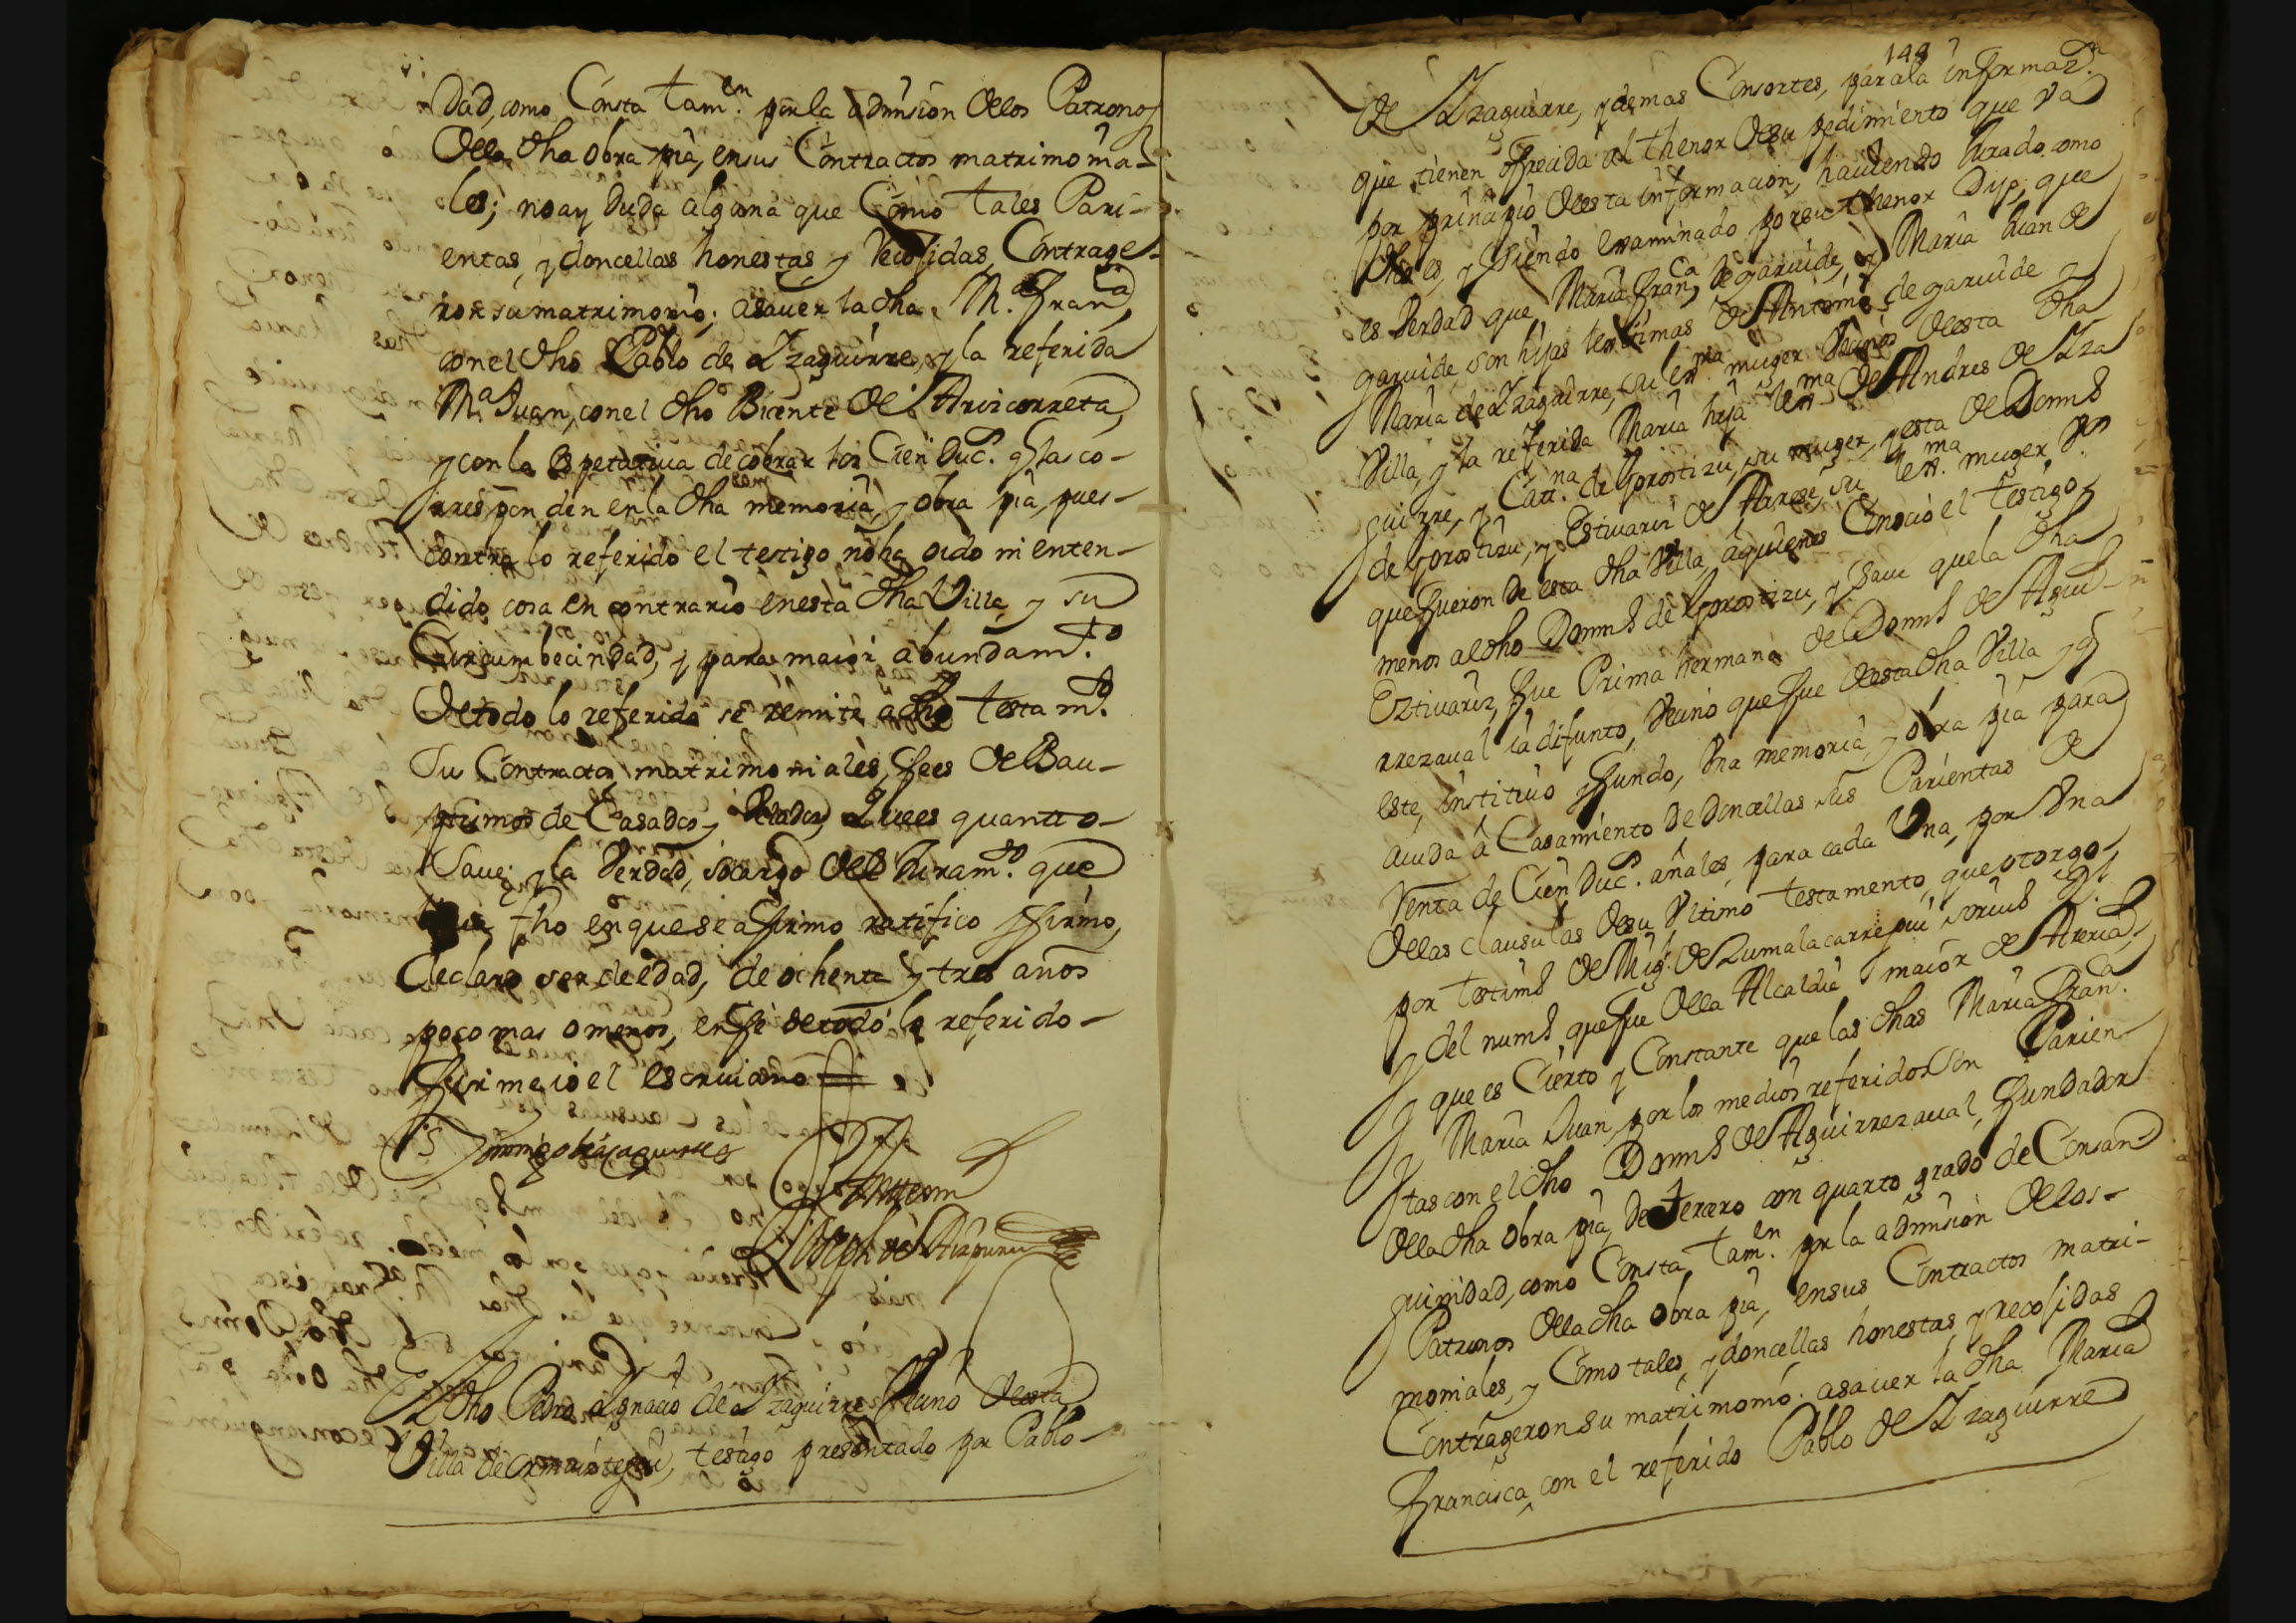 dad, como Consta tam.en por la admision de los Patronos
de la dha obra pia, en sus Contractos matrimonia-
les; no ay duda alguna que Como tales Pari-
entas, y doncellas honestas y recojidas, Contrage-
ron su matrimonio; asauer la dha M.a Fran.ca
con el dho Pablo de Yzaguirre, y la referida
M.a Juan, con el dho Bicente de Arizcorreta,
y con la espetatiua de cobrar los Cien Duc.s q las co-
rresponden en la dha memoria, y obra pia, pues-
contra lo referido el testigo no ha oido ni enten-
dido cosa en contrario en esta dha Villa, y su
Circumbecindad, y para maior abundam.to
de todo lo referido se remite a dho testam.to
Su Contractos matrimoniales, fees de Bau-
ptismos de Casados y Velados, Que es quanto-
Saue; y la Verdad, socargo del Juram.to que
fho en que se afirmo ratifico y firmo,
declaro ser de edad, de ochenta y tres años
poco mas o menos, en fe de todo lo referido-
firme io el escriuano
Domingo de Yzaguirre
Ante mi
Joseph de Aizpuru
El dho Pedro Ygnacio de Yzaguirre Vecino de esta
Villa de Ormaiztegui, testigo presentado por Pablo-
148
de Yzaguirre, y demas Consortes, para la informaz.n
que tienen ofrecida al thenor de su pedimiento que va
por principio de esta informacion, hauiendo Jurado como
dho es, y siendo examinado por su thenor Dijo; que
es Verdad que Maria Fran.ca de garuide, y Maria Juan de
garuide, son hijas lexitimas de Antonio de garuide y
Maria de Yzaguirre, su lex.ma muger Vecinos de esta dha
Villa, y la referida Maria hija lex.ma de Andres de Yza
guirre, y Cat.na de Gorostizu, su muger, y esta de Dom.o
de Gorostizu, y Estiuariz de Arrese, su lex.ma muger V.os
que fueron de esta dha Villa, a quienes Conocio el testigo,
menos al dho Dom.o de Gorostizu, y Saue que la dha
Eztiuariz, fue Prima hermana de Dom.o de Agui-
rrezaual ia difunto, Vecino que fue de esta dha Villa y q
este, instituio y fundo, Vna memoria, y obra pia para
aiuda a Casamiento de doncellas sus Parientas de
Renta de Cien Duc.s añales, para cada Vna, por Vna
de las clausulas de su Vltimo testamento, que otorgo,
por testim.o de Mig.l de Zumalacarregui scriu.o R.l
y del num.o que fue de la Alcaldia maior de Areria,
y que es Cierto y Constante que las dhas Maria Fran.ca
y Maria Juan, por los medios referidos Son Parien-
tas con el dho Dom.o de Aguirrezaual, fundador
de la dha obra pia, de tercero con quarto grado de Consan
guinidad, como Consta tam.en por la admision de los-
Patronos de la dha obra pia, en sus Contractos matri-
moniales, y Como tales, y doncellas honestas, y recojidas
Contrageron su matrimonio. asauer la dha Maria
Francisca, con el referido Pablo de Yzaguirre